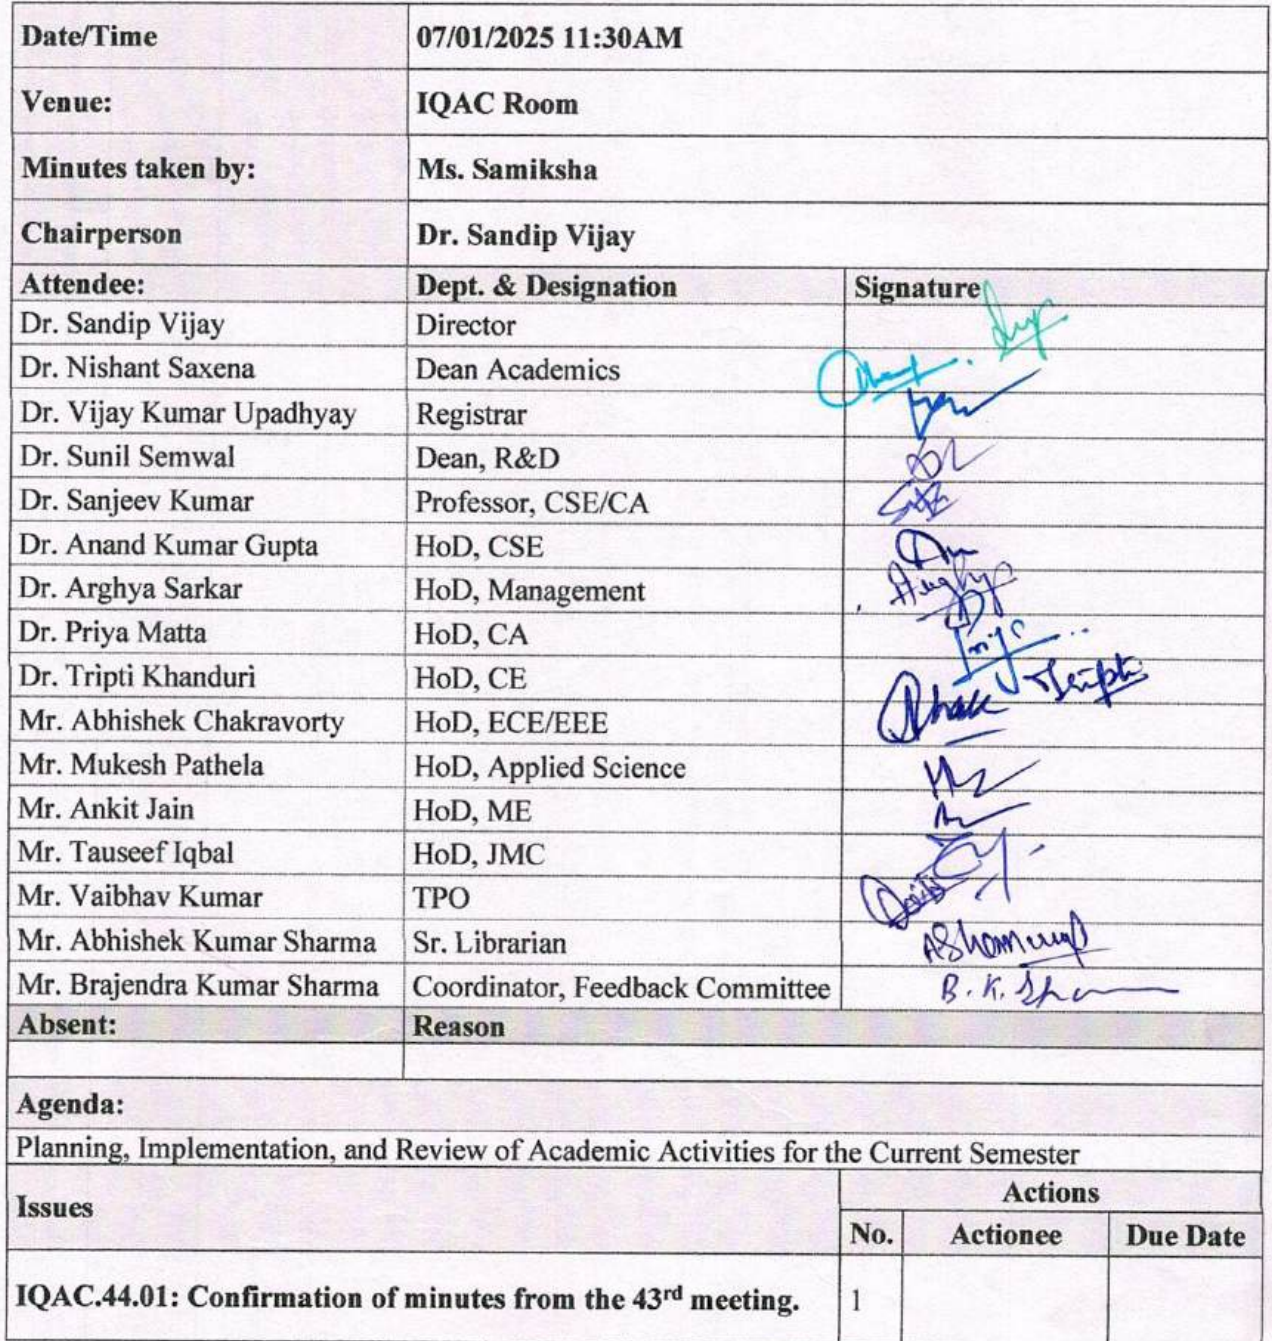 Date/Time 07/01/2025 11:30AM
Venue: IQAC Room
Minutes taken by: Ms. Samiksha
Chairperson Dr. Sandip Vijay
Attendee: Dept. & Designation Signature
Dr. Sandip Vijay Director
Dr. Nishant Saxena Dean Academics
Dr. Vijay Kumar Upadhyay Registrar
Dr. Sunil Semwal Dean, R&D
Dr. Sanjeev Kumar Professor, CSE/CA
Dr. Anand Kumar Gupta HoD, CSE
Dr. Arghya Sarkar HoD, Management
Dr. Priya Matta HoD, CA
Dr. Tripti Khanduri HoD, CE
Mr. Abhishek Chakravorty HoD, ECE/EEE
Mr. Mukesh Pathela HoD, Applied Science
Mr. Ankit Jain HoD, ME
Mr. Tauseef Iqbal HoD, JMC
Mr. Vaibhav Kumar TPO
Mr. Abhishek Kumar Sharma Sr. Librarian
Mr. Brajendra Kumar Sharma Coordinator, Feedback Committee B. K.
Absent: Reason
Agenda:
Planning, Implementation, and Review of Academic Activities for the Current Semester
Issues Actions
No. Actionee Due Date
IQAC.44.01: Confirmation of minutes from the 43rd meeting. 1